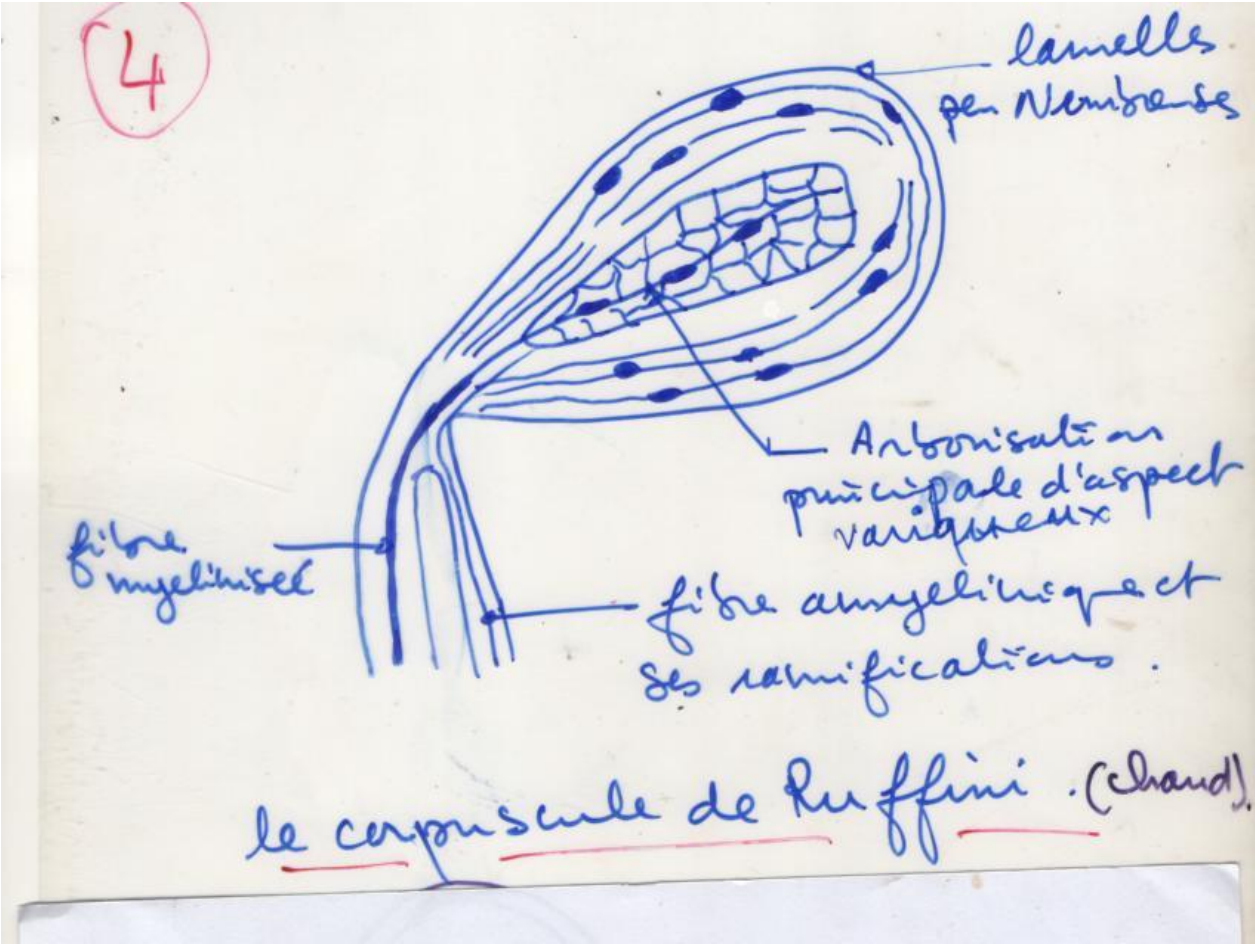 4
lamelles
peu Nombreuses
Arborisation
principale d'aspect
variqueux
fibre
myelinisée
fibre amyelinique et
ses ramifications.
le corpuscule de Ruffini. (chaud).